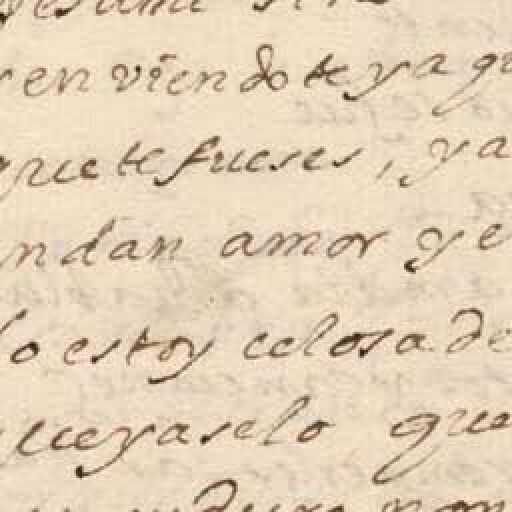 en viendote ya qu
que te fueses, ya
ndan amor y e
lo estoy celosa de
que ya se lo que